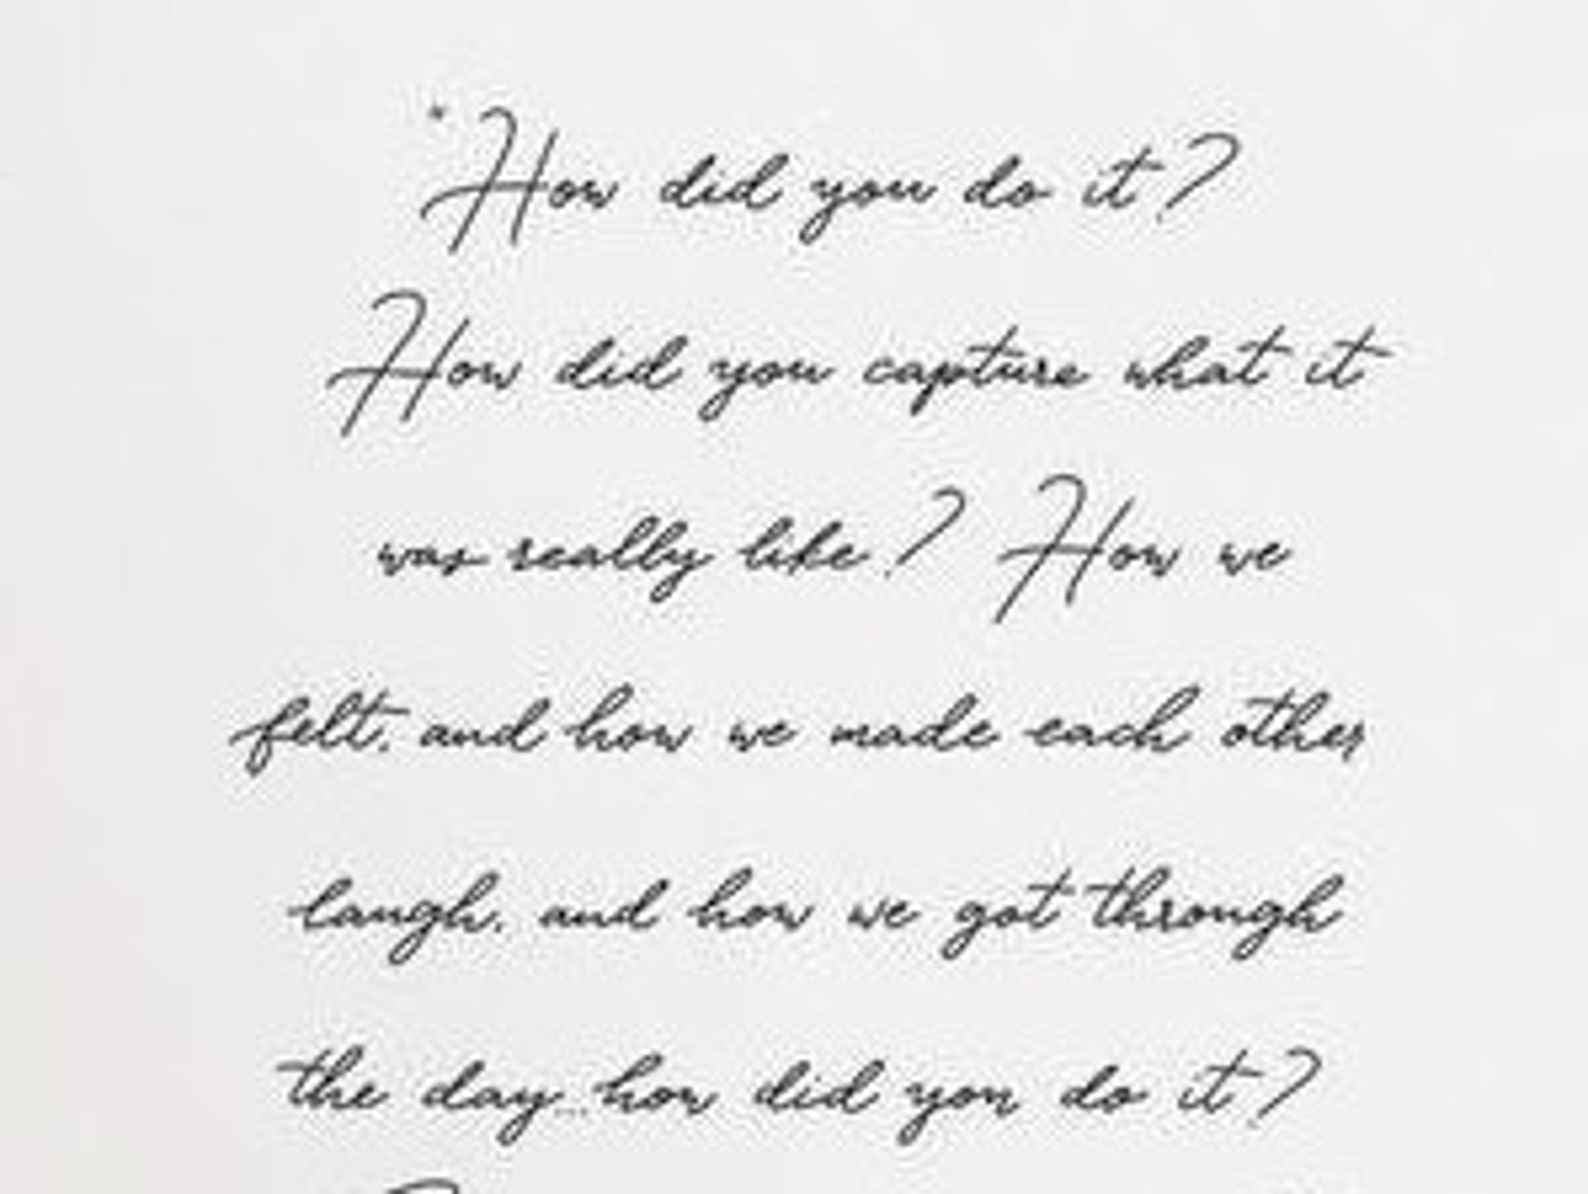 "How did you do it?
How did you capture what it
was really like? How we
felt, and how we made each other
laugh, and how we got through
the day...how did you do it?